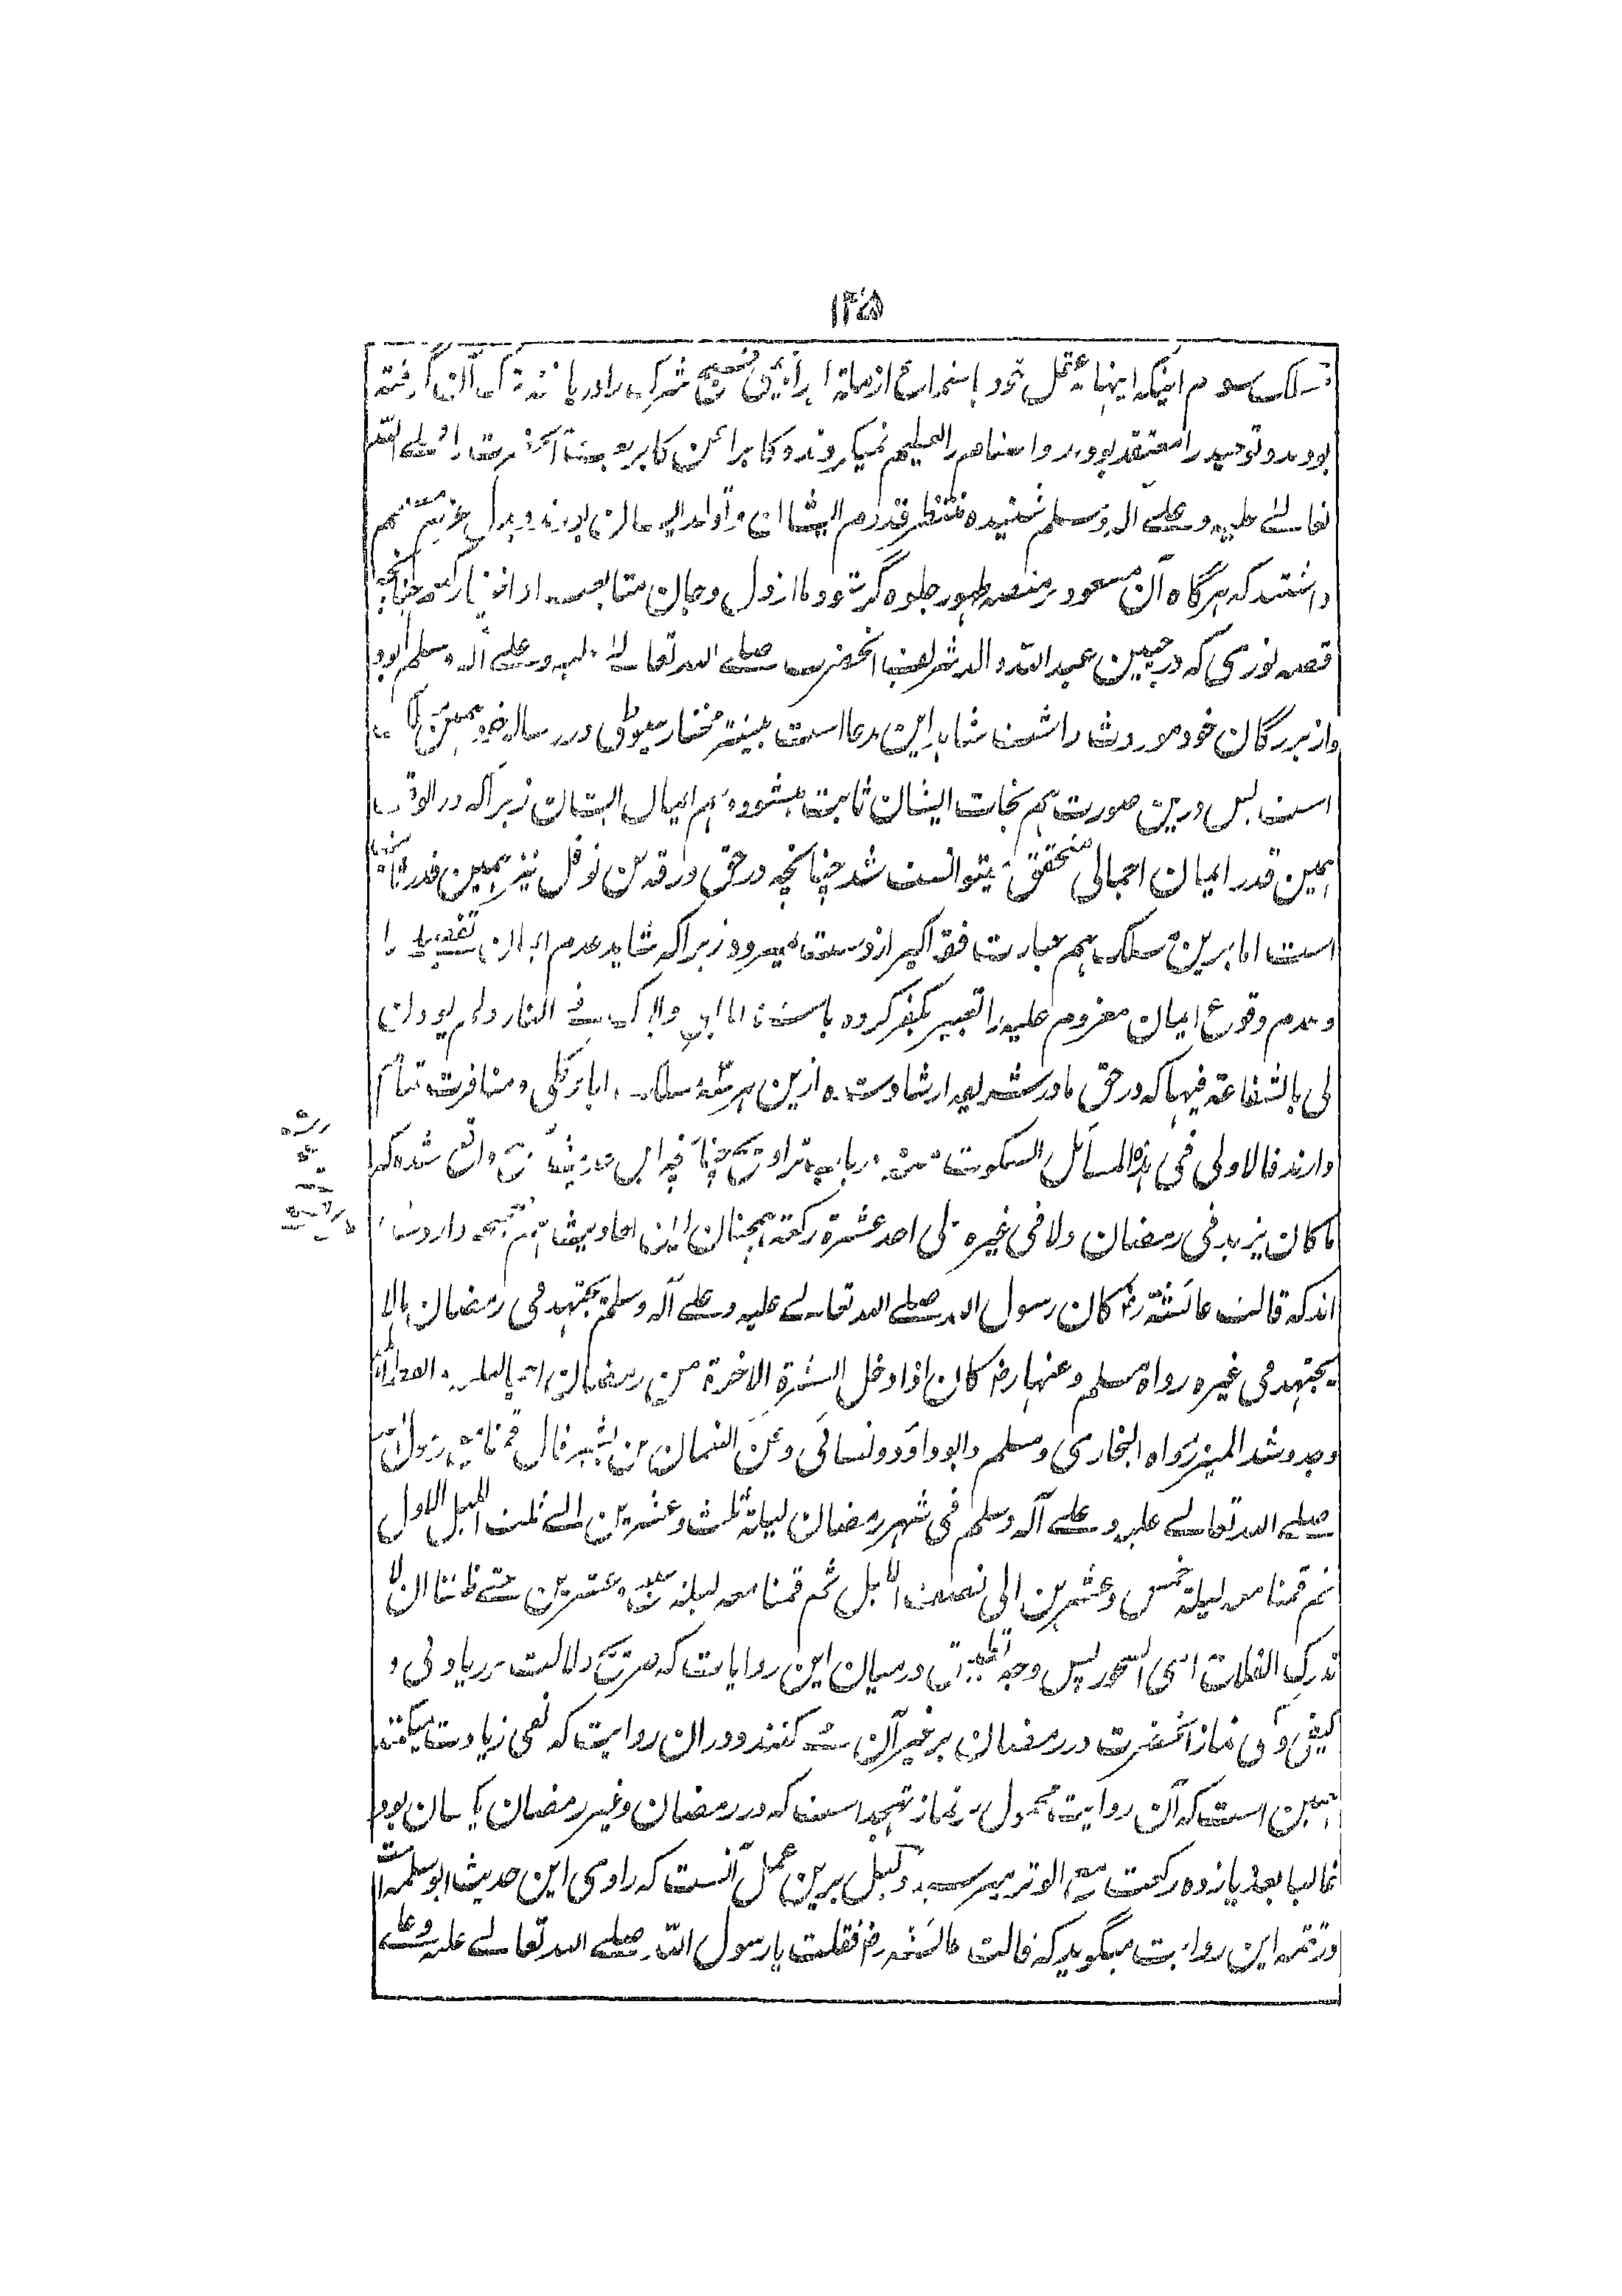 ۱۲۵
مسلک سوم اینکه اینها بعقل خود باستماع از ملة ابراهیمی قبح شرک را دریافته ترک آن گرفته
بودند و توحید را معتقد بودند و اصنام را تعظیم نمیکردند و کابرا عن کابر بعثت آنحضرت را صلے الله
تعالے علیه و علے آله وسلم شنیده منتظر قدوم ایشان و بودند و بدل عزیمت مصمم
داشتند که هرگاه آن مسعود بر منصه ظهور جلوه گر شود ما از دل و جان متابعت او اختیار کنیم چنانچه
قصه نوری که در جبین عبد الله والد شریف آنحضرت صلے الله تعالے علیه و علے آله وسلم بود
و از بزرگان خود موروث داشت شاهد این مدعا است شیخ سیوطی در رساله خود همین
است پس درین صورت هم نجات ایشان ثابت میشود و هم ایمان ایشان زیرا که در الوقت
همین قدر ایمان اجمالی متحقق میتوانست شد چنانچه در حق ورقه بن نوفل نیز همین قدر ثابت
است اما برین مسلک هم عبارت فقه اکبر از دست میرود زیرا که شاید عدم ایمان تفصیلی را
و عدم وقوع ایمان معزوم علیه را تعبیر بکفر کرده باشند اما ابی و ابوک فے النار و لم یوذن
لی بالشفاعة فیها که در حق مادر شریف ارشاد شده ازین هر سه مسلک اباء کلی و منافرت تمام
دارند فالاولی فی هذه المسائل السکوت در باب تراویح چنانچه این حدیث صحیح واقع شده که
ما کان یزید فی رمضان ولا فی غیره علی احد عشرة رکعة همچنان این احادیث هم صحیحه وارد شده
اند که قالت عائشة رض کان رسول الله صلے الله تعالے علیه و علے آله وسلم یجتهد فی رمضان مالا
یجتهد فی غیره رواه مسلم و عنها رض کان اذا دخل العشرة الاخرة من رمضان احیا اللیل و ایقظ اهله
و جد و شد المیزر رواه البخاری و مسلم و ابو داؤد و نسائی و عن النعمان بن بشیر قال قمنا مع رسول الله
صلے الله تعالے علیه و علے آله وسلم فی شهر رمضان لیلة ثلث و عشرین الے ثلث اللیل الاول
ثم قمنا معه لیلة خمس و عشرین الی نصف اللیل ثم قمنا معه لیلة سبع و عشرین حتے ظننا ان لا
ندرک الفلاح ای السحور پس وجه تطبیق در میان این روایات که صریح دلالت بر زیادتی و
کیفی و کمی نماز آنحضرت در رمضان بر غیر آن مے کنند و در ان روایت که نفی زیادت میکند
همین است که آن روایت محمول بر نماز تهجد است که در رمضان و غیر رمضان یکسان بود
غالبا بعدد یازده رکعت مع الوتر میرسید و دلیل برین حمل آنست که راوی این حدیث ابو سلمه است
در تتمه این روایت میگوید که قالت عائشه رض فقلت یا رسول الله صلے الله تعالے علیه و علے